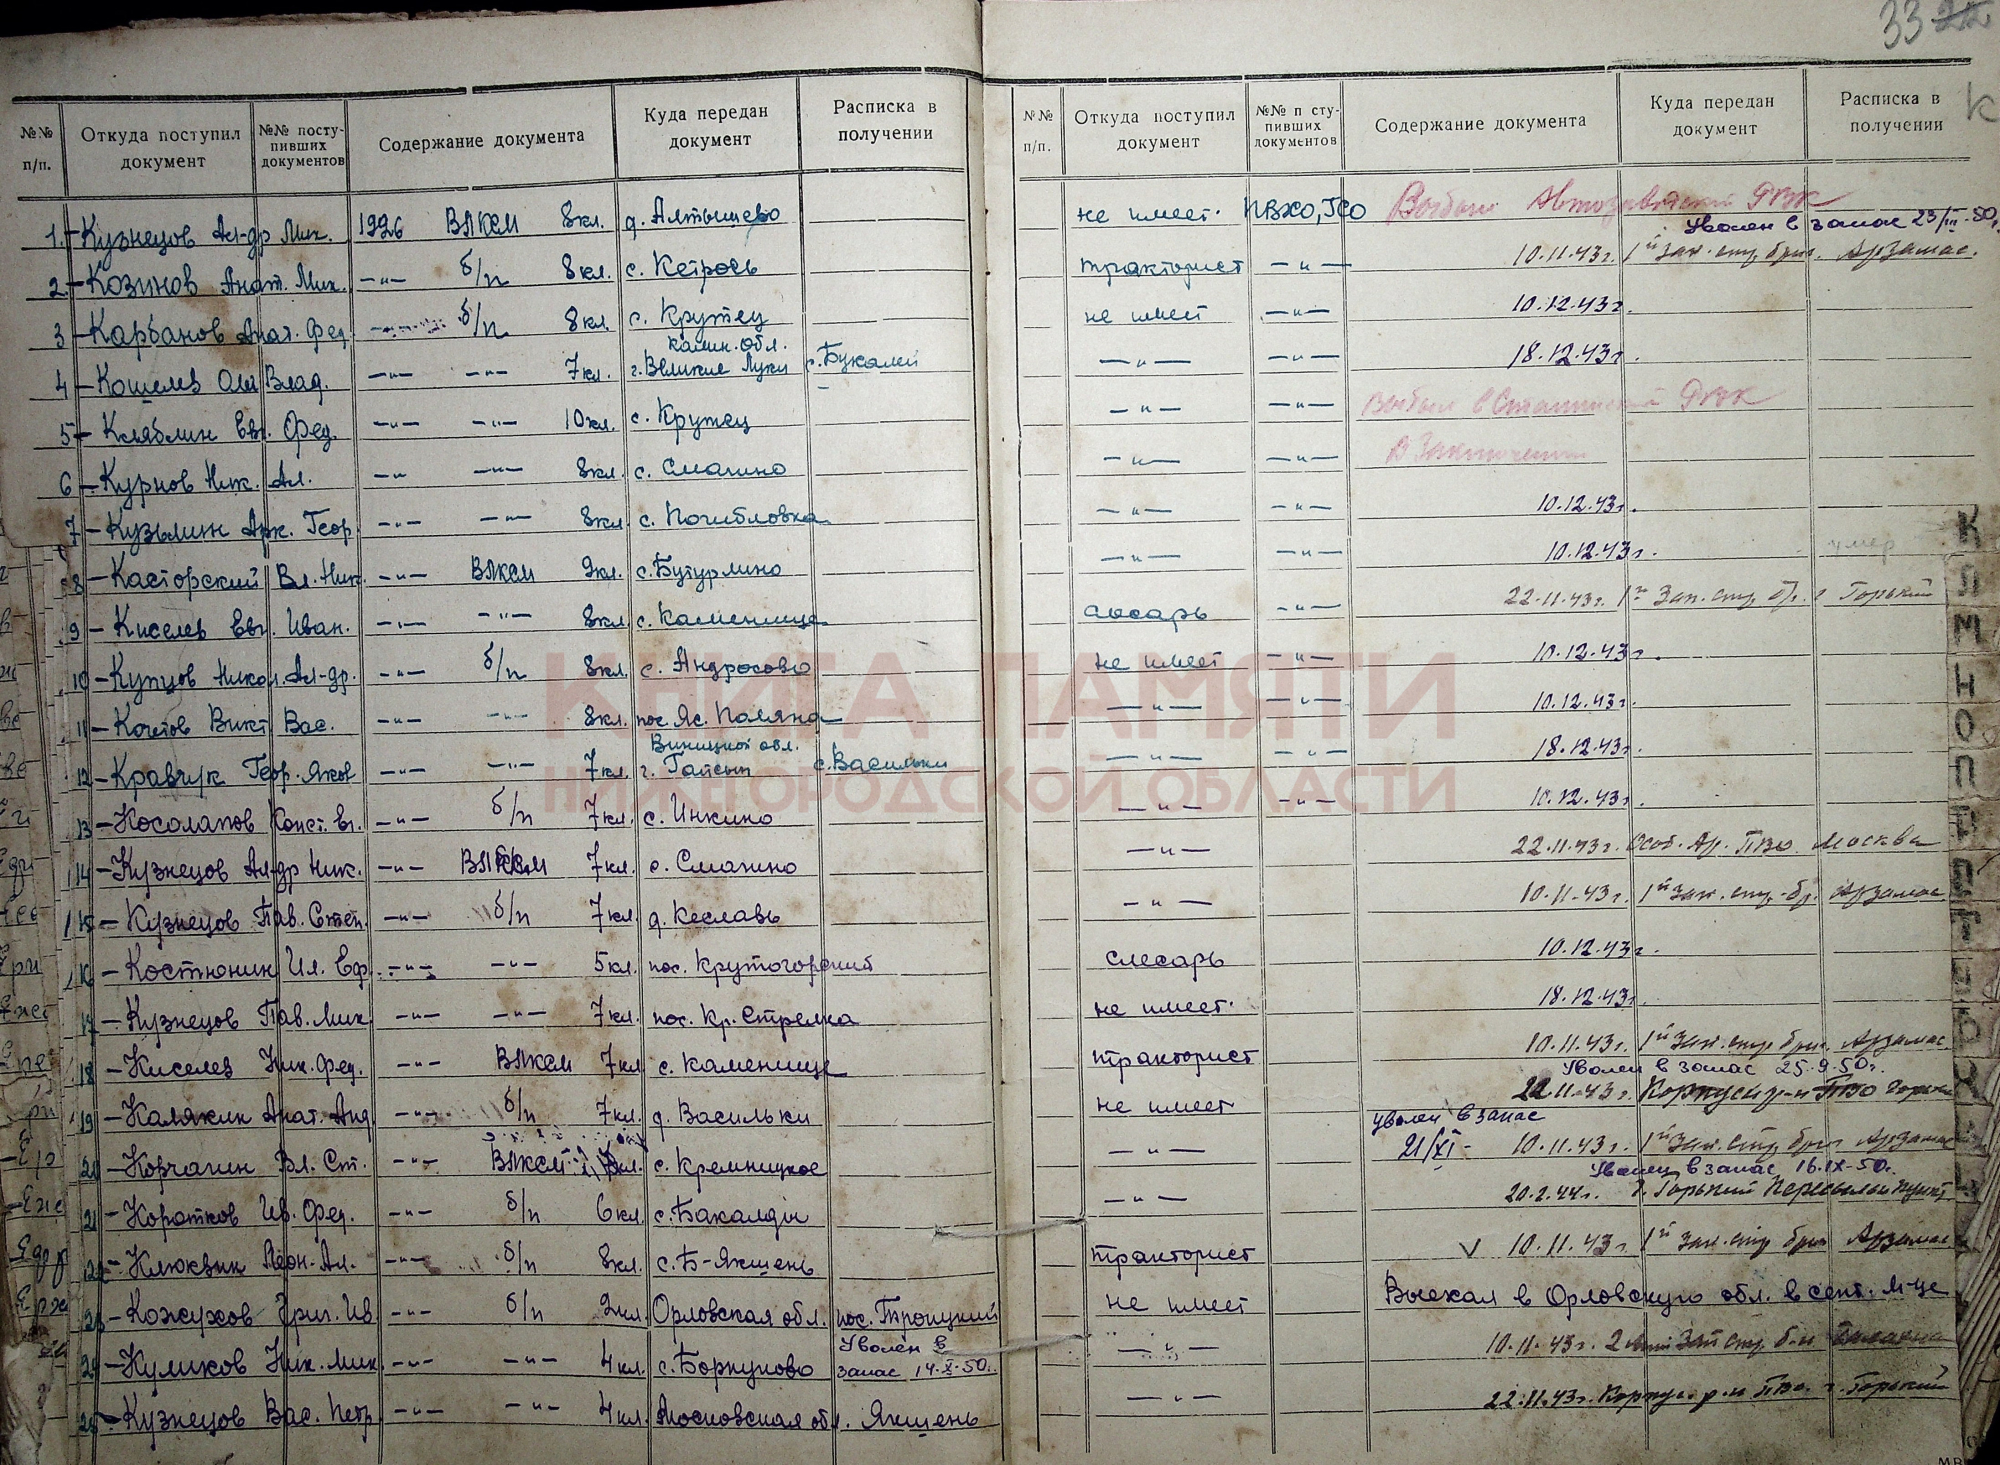 33 22
№№ п/п. Откуда поступил документ №№ посту-пивших документов Содержание документа Куда передан документ Расписка в получении
№№ п/п. Откуда поступил документ №№ п сту-пивших документов Содержание документа Куда передан документ Расписка в получении
К
1. – Кузнецов Ал-др Мих. 1926 ВЛКСМ 8кл. д. Алтышево
не имеет. ПВХО, ГСО Выбыл Автозаводский РВК
Уволен в запас 23/III-50г.
2. – Козинов Анат. Мих. –"– б/п 8кл. с. Кетрось
тракторист –"– 10.11.43г. 1й зап. стр. бриг. Арзамас.
3 – Карбанов Анат. Фед. б/п 8кл. с. Крутец
не имеет –"– 10.12.43г.
калин. обл.
4 – Кошелев Влад. –"– –"– 7кл. г. Великие Луки с. Букалей
–"– –"– 18.12.43г.
5 – Кляблин Евг. Фед. –"– –"– 10кл. с. Крутец
–"– –"– Выбыл в Сталинский РВК
6 – Курнов Ник. Ал. –"– –"– 8кл. с. Смагино
–"– –"– В Заключении
7 – Кузьмин Арк. Геор. –"– –"– 8кл. с. Погибловка
–"– –"– 10.12.43г.
8 – Касторский Вл. Ник. –"– ВЛКСМ 9кл. с. Бутурлино
–"– –"– 10.12.43г. умер
9 – Киселев Евг. Иван. –"– –"– 8кл. с. Каменище
слесарь –"– 22.11.43г. 1й Зап. стр. бр. г Горький
10 – Купцов Никол. Ал-др. –"– б/п 8кл. с. Андросово
не имеет –"– 10.12.43г.
11 – Кочетов Викт Вас. –"– –"– 8кл. пос. Яс. Поляна
–"– –"– 10.12.43г.
Виницкой обл.
12 – Кравчук Геор. Яков –"– –"– 7кл. г. Гайсын с. Васильки
–"– –"– 18.12.43г.
13 – Косолапов Конст. Ег. –"– б/п 7кл. с. Инкино
–"– –"– 10.12.43г.
14 – Кузнецов Ал-др Ник. –"– ВЛКСМ 7кл. с. Смагино
–"– 22.11.43г. Особ. Ар. ПВО Москва
15 – Кузнецов Пав. Степ. –"– б/п 7кл. д. Кеславь
–"– 10.11.43г. 1й зап. стр. бр. Арзамас.
16 – Костюнин Ил. Еф. –"– –"– 5кл. пос. Крутогорский
слесарь 10.12.43г.
17 – Кузнецов Пав. Мих. –"– –"– 7кл. пос. Кр. Стрелка
не имеет. 18.12.43г.
18 – Киселев Ник. Фед. –"– ВЛКСМ 7кл с. Каменище
тракторист 10.11.43г. 1й Зап. стр. бриг. Арзамас.
Уволен в запас 25.9.50г.
19 – Калякин Анат. Анд –"– б/п 7кл. д. Васильки
не имеет 22.11.43г. Корпусн р-н ПВО Горьк
уволен в запас
20 – Корчагин Вл. Ст. –"– ВЛКСМ 8кл. с. Кремницкое
–"– 21/XI- 10.11.43г. 1й Зап. Стр. бриг Арзамас
Уволен в запас 16.IX-50г.
21 – Коротков Ив. Фед. –"– б/п 6кл. с. Бакалды
–"– 20.2.44г. г. Горький Пересыльн пункт
22 – Клюквин Леон. Ал. –"– б/п 8кл. с. Б-Якшень
тракторист V 10.11.43г 1й Зап. стр бриг Арзамас
23 – Кожухов Григ. Ив –"– б/п 9кл. Орловская обл. пос. Троицкий
не имеет Выехал в Орловскую обл. в сент. м-це
24 – Куликов Ник. Мих. –"– –"– 4кл. с. Боркуново Уволен в запас 14-X-50г.
–"– 10.11.43г. Зап стр. б-н
25 – Кузнецов Вас. Петр. –"– –"– 4кл. Московская обл. Якшень
–"– 22.11.43г. Корпус. р-н ПВО. г. Горький
КНИГА ПАМЯТИ
НИЖЕГОРОДСКОЙ ОБЛАСТИ
К
Л
М
Н
О
П